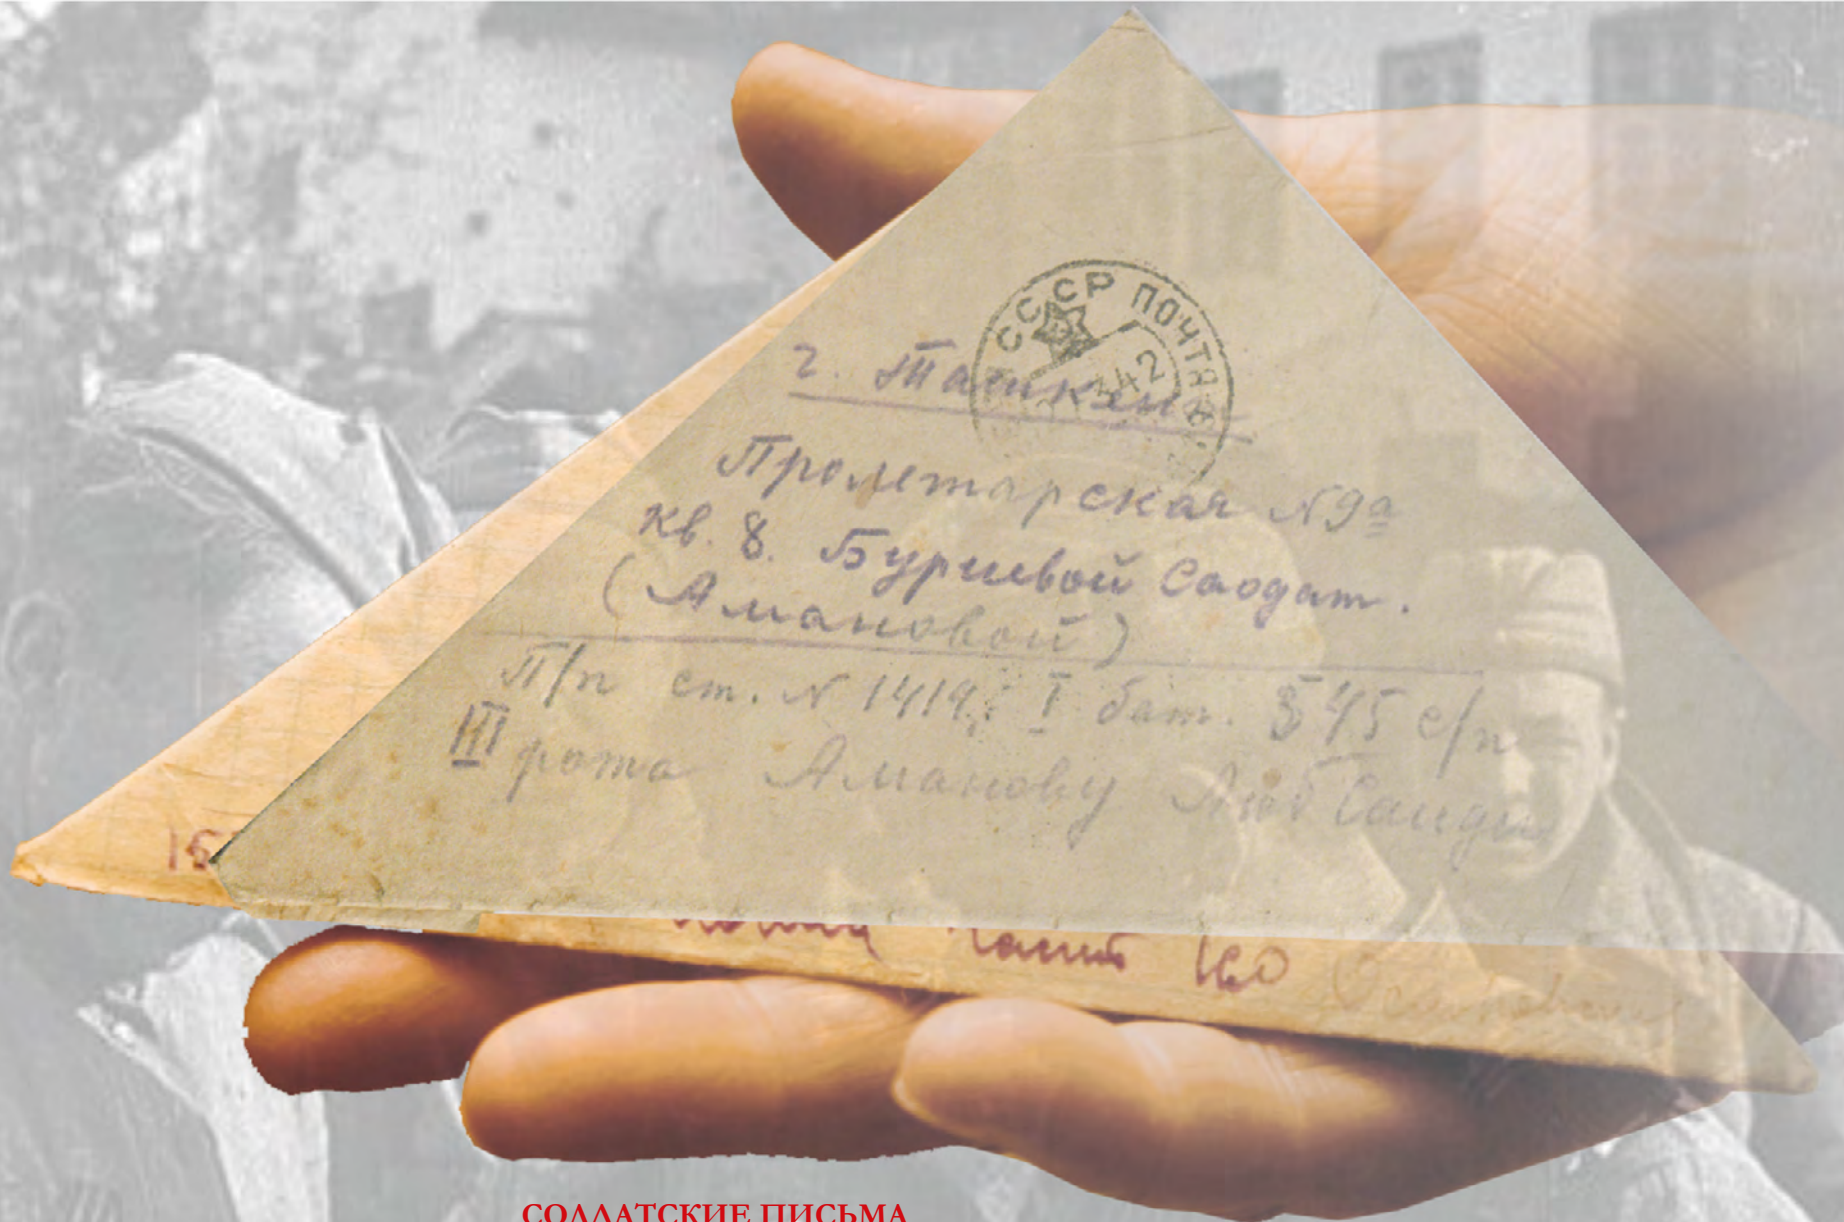 СССР ПОЧТА
342
г. Ташкент
Пролетарская №9а
кв. 8. Буриевой Саодат.
(Амановой)
П/п ст. № 1419, I бат. 545 с/п
III рота Аманову
15
160
СОЛДАТСКИЕ ПИСЬМА